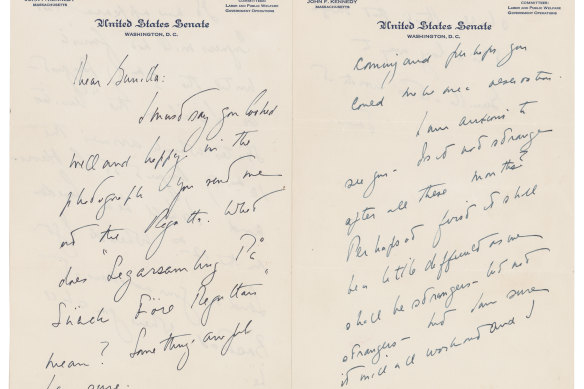 United States Senate
WASHINGTON, D. C.
COMMITTEES:
LABOR AND PUBLIC WELFARE
GOVERNMENT OPERATIONS
MASSACHUSETTS
Dear Gunilla:
I must say you looked
well and happy in the
photograph you send me
at the Regatta. What
does "Segarsambug På
Sünch Före Regattan"
mean? Something awful
I'm sure.
JOHN F. KENNEDY
MASSACHUSETTS
United States Senate
WASHINGTON, D. C.
COMMITTEES:
LABOR AND PUBLIC WELFARE
GOVERNMENT OPERATIONS
coming and perhaps you
could make me a reservation.
I am anxious to
see you - Is it not strange
after all these months?
Perhaps at first it shall
be a little difficult as we
shall be strangers - but not
strangers - but I am sure
it will all work out and I